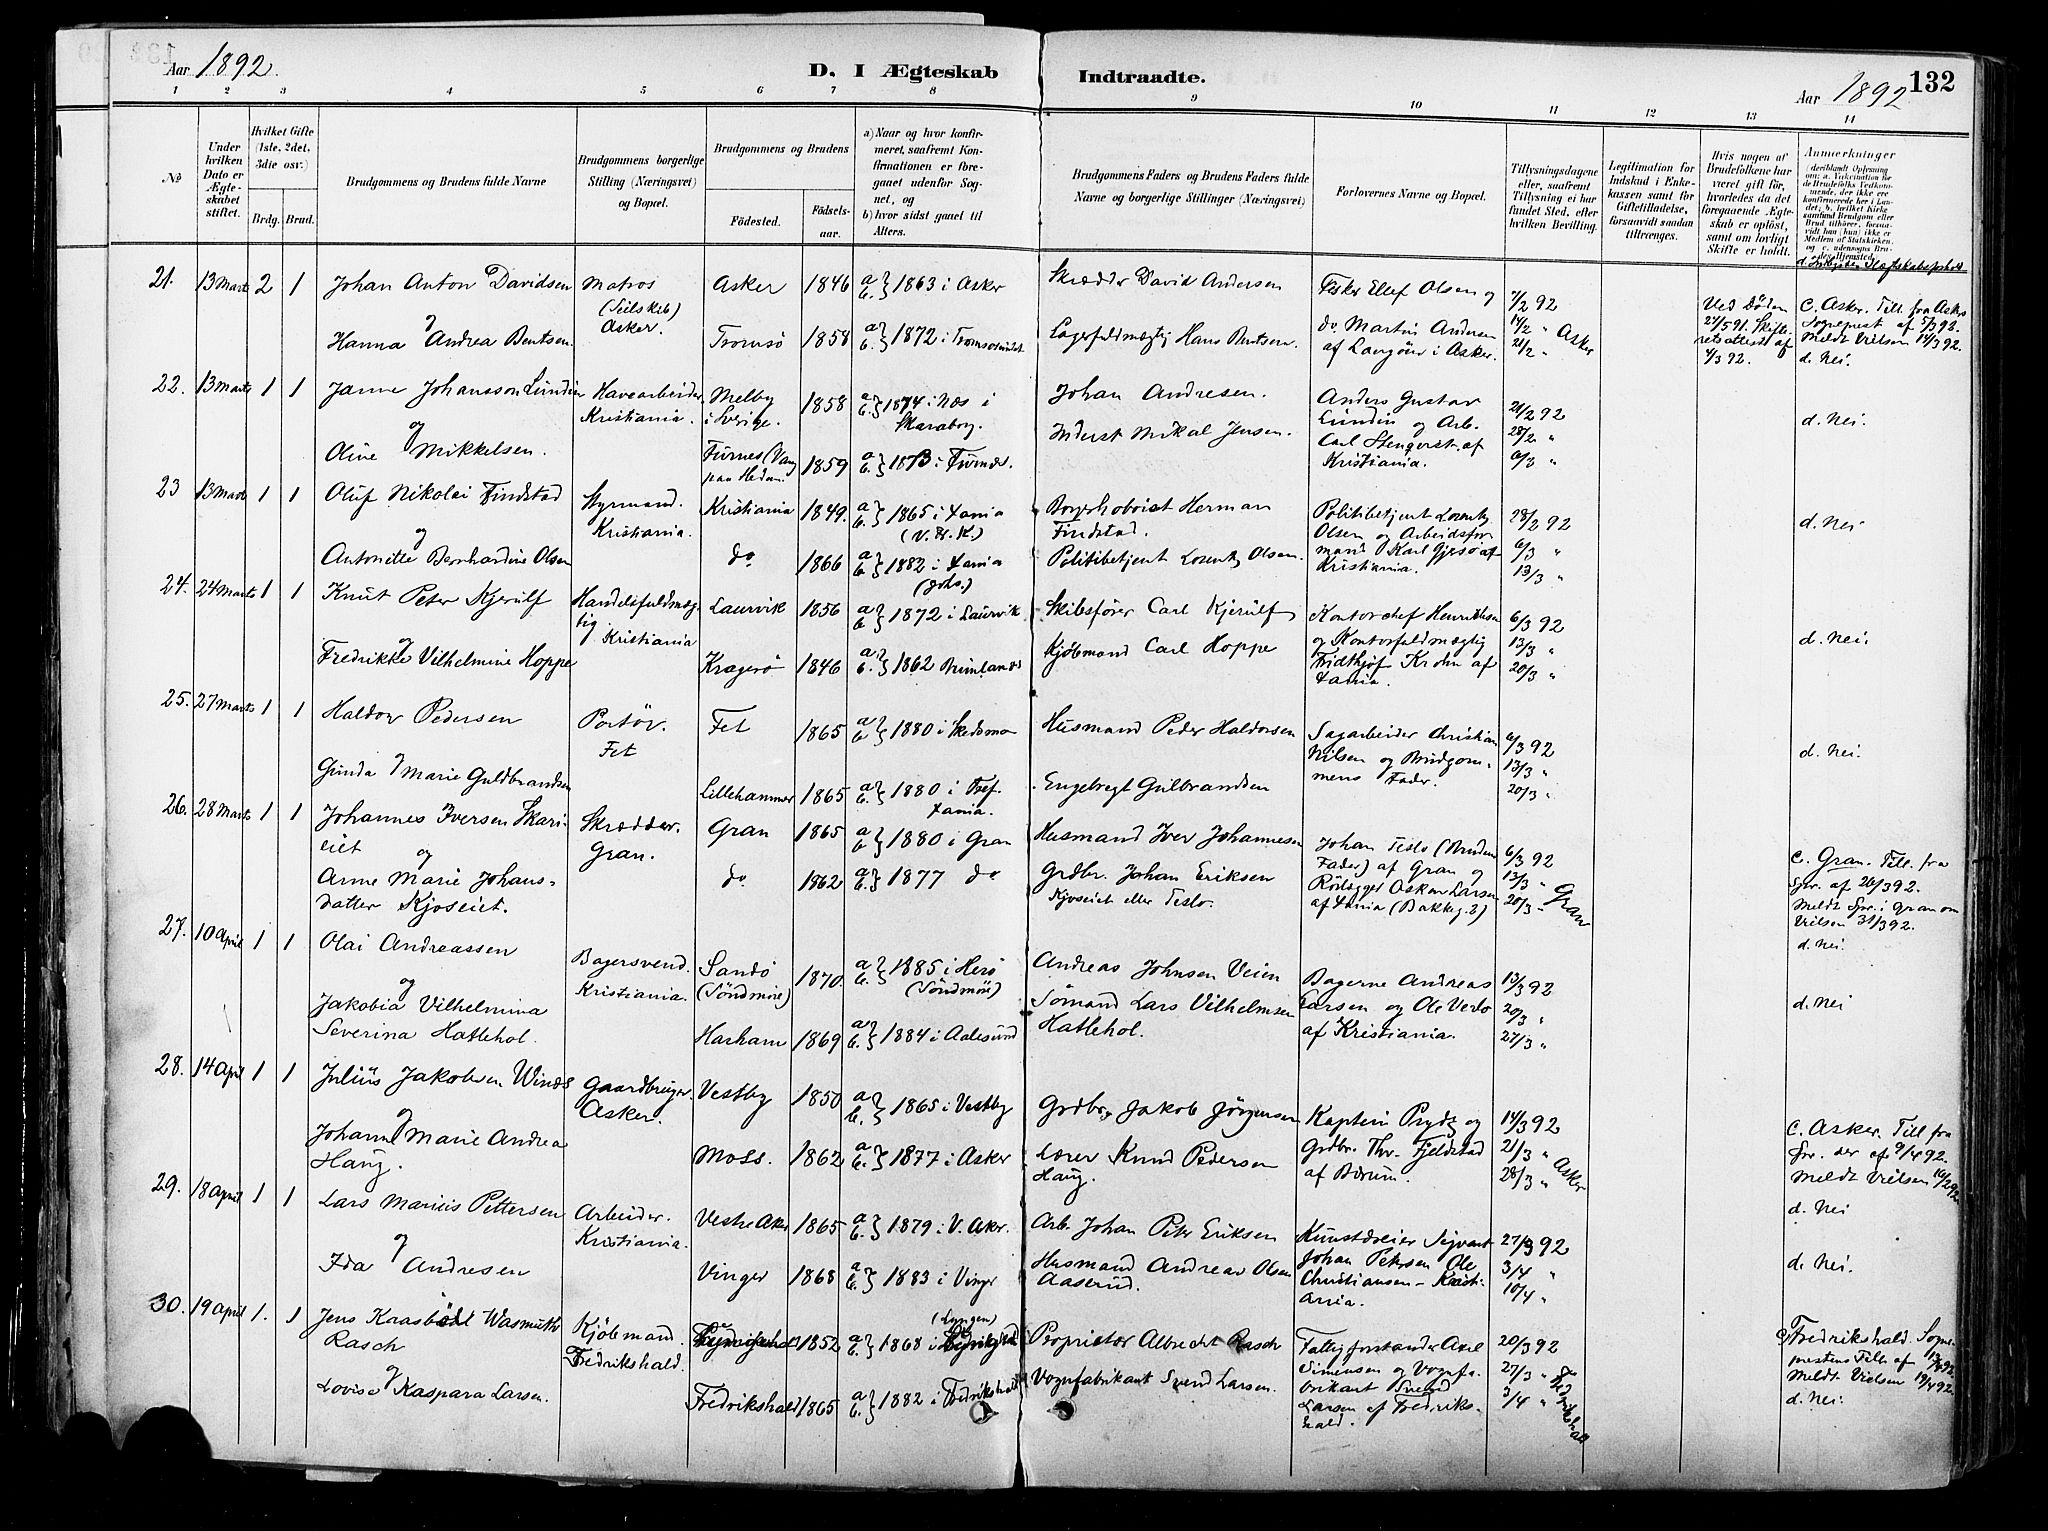 Aar 1892.
D. I Ægteskab Indtraadte.
Aar 1892
132
1 2 3 4 5 6 7 8 9 10 11 12 13 14
No
Under hvilken Dato er Ægteskabet stiftet.
Hvilket Gifte (1ste, 2det, 3die osv.)
Brdg. Brud.
Brudgommens og Brudens fulde Navne
Brudgommens borgerlige Stilling (Næringsvei) og Bopæl.
Brudgommens og Brudens
Fødested.
Fødselsaar.
a) Naar og hvor konfirmeret, saafremt Konfirmationen er foregaaet udenfor Sognet, og
b) hvor sidst gaaet til Alters.
Brudgommens Faders og Brudens Faders fulde Navne og borgerlige Stillinger (Næringsvei)
Forlovernes Navne og Bopæl.
Tillysningsdagene eller, saafremt Tillysning ei har fundet Sted, efter hvilken Bevilling.
Legitimation for Indskud i Enkekassen samt for Giftetilladelse, forsaavidt saadan tiltrænges.
Hvis nogen af Brudefolkene har været gift før, hvorledes da det foregaaende Ægteskab er opløst, samt om lovligt Skifte er holdt.
Anmærkninger
21. 13 Marts 2 1 Johan Anton Davidsen Matros (Seilskib) Asker. Asker 1846 a b } 1863 i Asker Skrædder David Andersen Fisker Ellef Olsen og do. Martin Andersen af Langöen i Asker. 7/2 92 14/2 " 21/2 " Asker Ved Døden 27/5 91. Skifteretsattest af 4/3 92. c. Asker. Till. fra Askers Sogneprest af 5/3 92. Meldt Vielsen 14/3 92. d. Nei.
og
Hanna Andrea Bentsen. Tromsö 1858 a. b. } 1872 i Tromsösundet Lagerfuldmægtig Hans Bentsen.
22. 13 Marts 1 1 Janne Johansson Lundin Havearbeider. Kristiania. Melby i Sverige. 1858 a b. } 1874 i Næs i Skaraborg. Johan Andresen. Anders Gustav Lundin og Arb. Carl Stenqvist af Kristiania. 21/2 92 28/2 " 6/3 " d. Nei.
og
Oline Mikkelsen. Furnes (Vang paa Hedm. 1859 a b. } 1873 i Furnæs. Inderst Mikal Jensen.
23 13 Marts 1 1 Oluf Nikolai Findstad Styrmand. Kristiania. Kristiania 1849. a b. } 1865 i Xania (V. Fr. K.) Borgerhoboist Herman Findstad. Politibetjent Lorentz Olsen og Arbeidsformand Karl Gjesö af Kristiania. 28/2 92 6/3 " 13/3 " d. Nei
og
Antonette Bernhardine Olsen do 1866 a b. } 1882 i Xania (Johs.) Politibetjent Lorentz Olsen.
24. 24 Marts 1 1 Knut Peter Kjerulf Handelsfuldmægtig Kristiania Laurvik 1856 a b } 1872 i Laurvik Skibsfører Carl Kjerulf Kontorchef Henrichsen og Kontorfuldmægtig Fridthjof Krohn af Xania. 6/3 92 13/3 " 20/3 " d. Nei.
og
Fredrikke Vilhelmine Hoppe Kragerö 1846 a. b. } 1862 Brunlanæs Kjöbmand Carl Hoppe
25. 27 Marts 1 1 Haldor Pedersen Portör. Fet Fet 1865 a b } 1880 i Skedsmo Husmand Peder Haldorsen Sagarbeider Christian Nilsen og Brudgommens Fader. 6/3 92 13/3 " 20/3 " d. Nei.
og
Gunda Marie Guldbrandsen Lillehammer 1865 a b. } 1880 i Tref. Xania. Engebregt Gulbrandsen
26. 28 Marts 1 1 Johannes Iversen Skarieiet Skrædder. Gran. Gran 1865 a b } 1880 i Gran Husmand Iver Johannesen Johan Teslo (Brudens Fader) af Gran og Rödlægger Oskar Larsen af Xania (Bakkeg. 2) 6/3 92 13/3 " 20/3 " Gran c. Gran. Till. fra Spr. af 26/3 92. Meldt Spr. i Gran om Vielsen 31/3 92. d. Nei.
og
Anne Marie Johansdatter Kjoseiet. do 1862 a. b. } 1877 do Grdbr. Johan Eriksen Kjoseiet eller Teslo.
27. 10 April 1 1 Olai Andreassen Bagersvend. Kristiania. Sandö (Söndmöre) 1870. a b. } 1885 i Herö (Söndmöre) Andreas Johnsen Veien Bagerne Andreas Larsen og Ole Verlo af Kristiania. 13/3 92 20/3 " 27/3 " d. Nei
og
Jakobia Vilhelmina Severina Hatlehol. Harham 1869 a b. } 1884 i Aalesund Sömand Lars Vilhelmsen Hatlehol.
28. 14 April 1 1 Julius Jakobsen Vinæs Gaardbruger Asker. Vestby 1850 a b. } 1865 i Vestby Grdbr. Jakob Jörgensen Kaptein Prydz og Grdbr. Thr. Fjeldstad af Bærum. 14/3 92 21/3 " 28/3 " Asker c. Asker. Till fra Spr. der af 9/4 92. Meldt Vielsen 16/4 92 d. Nei
og
Johanne Marie Andrea Haug. Moss. 1862 a b. } 1877 i Asker Lærer Knud Pedersen Haug.
29. 18 April 1 1 Lars Marius Pettersen Arbeider. Kristiania. Vestre Aker 1865 a b. } 1879 i V. Aker. Arb. Johan Peter Eriksen Kunstdreier Sigvart Johan Petersen Ole Christiansen - Kristiania. 27/3 92 3/4 " 10/4 " d. Nei.
og
Ida Andresen Vinger 1868 a b. } 1883 i Vinger Husmand Andreas Olsen Aaserud.
30. 19 April 1. 1 Jens Kraabøl Wasmuth Rasch Kjöbmand. Fredrikshald. 1852 a. b. } 1868 i (Lyngen) Proprietær Albrecht Rasch Fattigforstander Axel Simensen og Vognfabrikant Svend Larsen af Fredrikshald. 20/3 92 27/3 " 3/4 " Fredrikshald c. Fredrikshald. Sogneprestens Till af 13/4 92. Meldt Vielsen 19/4 92. d. Nei.
og
Lovise Kaspara Larsen. Fredrikshald 1865 a. b. } 1882 i Fredrikshald Vognfabrikant Svend Larsen.